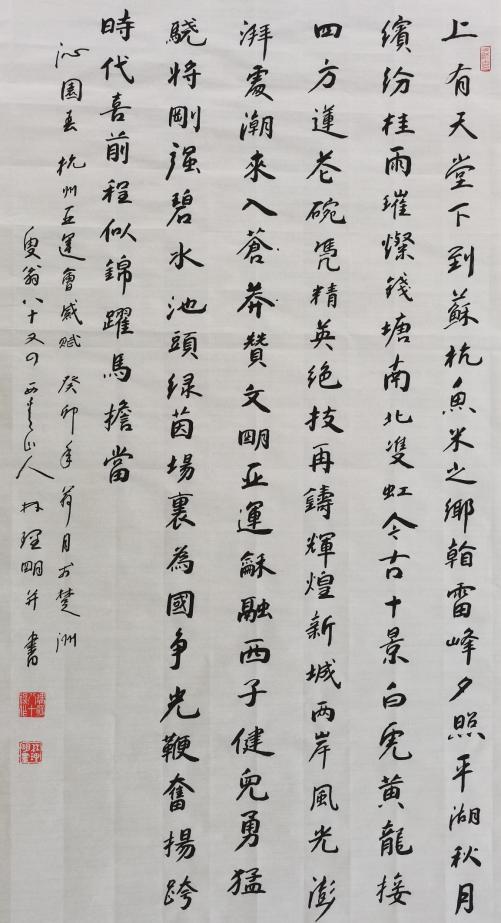 上有天堂下到蘇杭魚米之鄉翰雷峰夕照平湖秋月
繽紛桂雨璀燦錢塘南北雙虹今古十景白虎黃龍接
四方蓮花碗凭精英绝技再鑄輝煌新城两岸風光澎
湃處潮來入蒼莽贊文明亚運龢融西子健兒勇猛
驍將剛强碧水池頭绿茵場裏為國争光鞭奮揚跨
時代喜前程似錦躍馬擔當
沁園春杭州亚運會感賦癸卯年荷月於楚洲
叟翁八十又四山人林理明并書